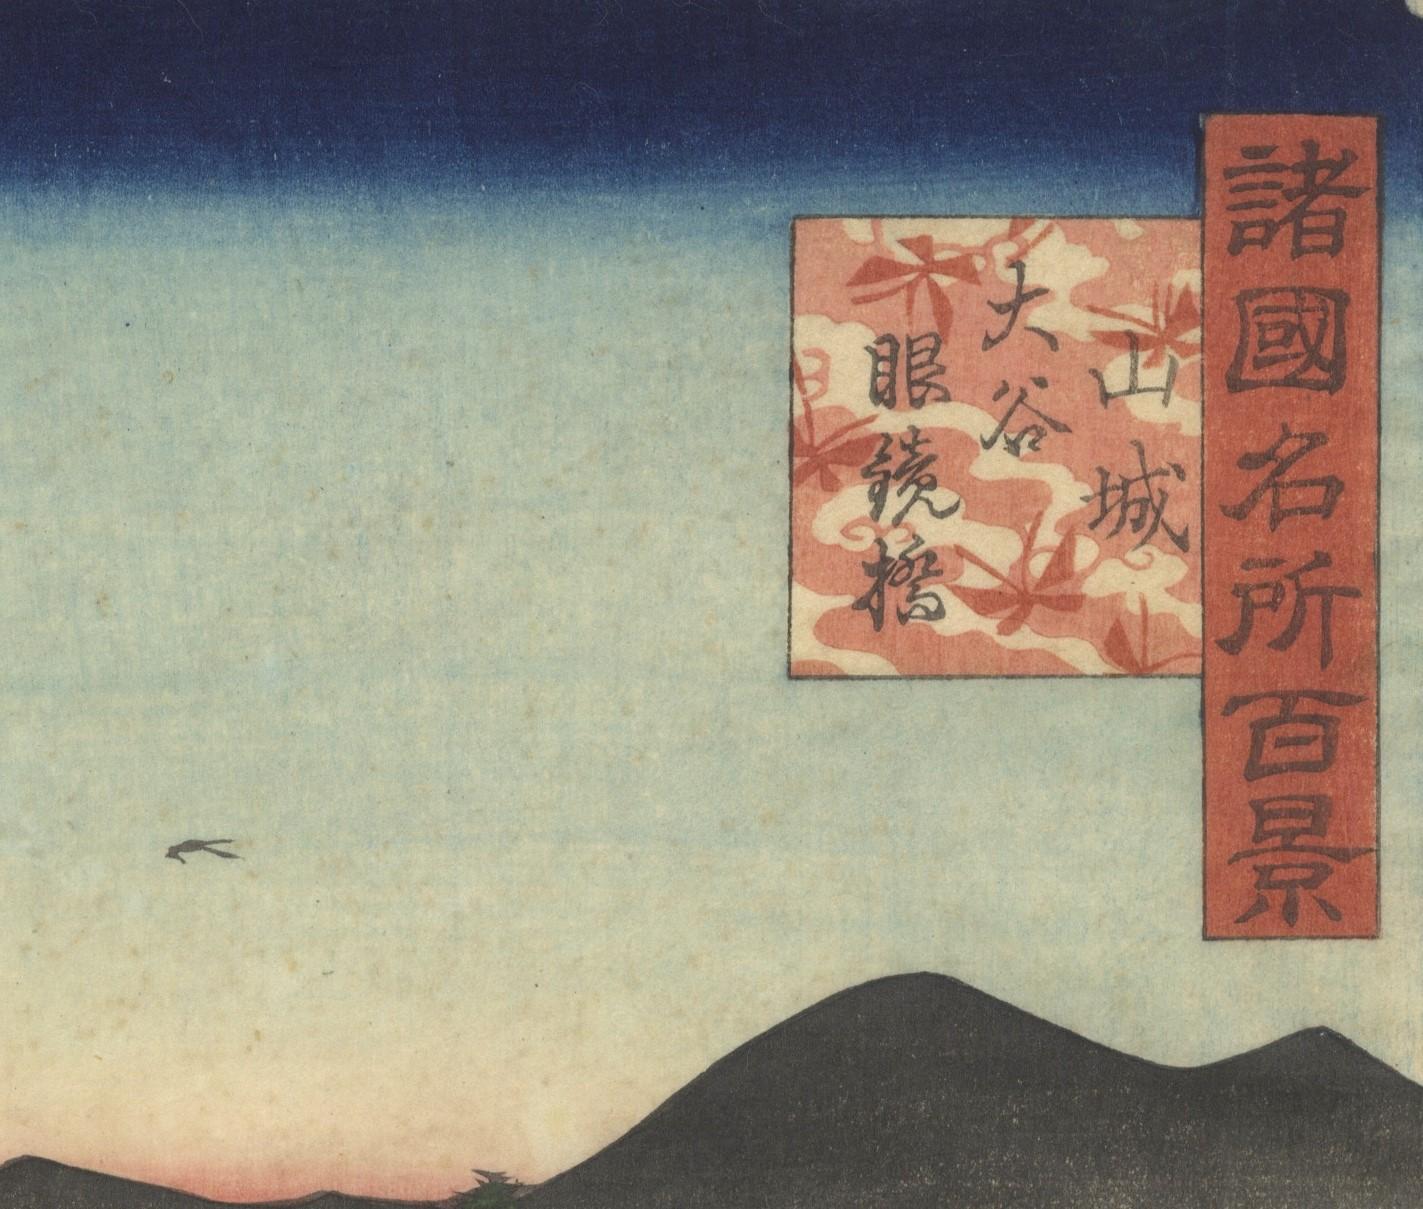 諸國名所百景
山城
大谷
眼鏡橋